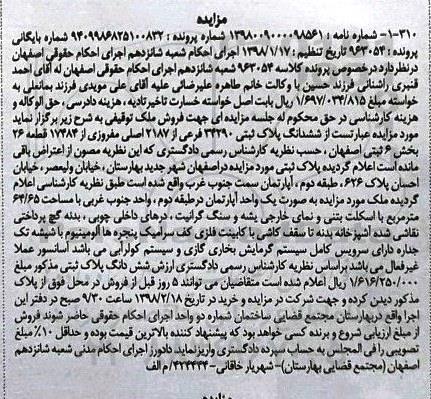 مزایده
۳۱۰-۱- شماره نامه : ۱۳۹۸۰۰۹۰۰۰۰۹۸۵۶۱ شماره پرونده : ۹۴۰۹۹۸۶۸۲۵۱۰۰۸۳۲ شماره بایگانی
پرونده : ۹۶۳۰۵۴ تاریخ تنظیم : ۱۳۹۸/۱/۱۷ اجرای احکام شعبه شانزدهم اجرای احکام حقوقی اصفهان
در نظر دارد در خصوص پرونده کلاسه ۹۶۳۰۵۴ شعبه شانزدهم اجرای احکام حقوقی اصفهان له آقای احمد
قنبری راشنانی فرزند حسین با وکالت خانم طاهره علیرضائی علیه آقای علی مویدی فرزند بمانعلی به
خواسته مبلغ ۱/۶۹۷/۰۳۴/۸۱۵ ریال بابت اصل خواسته خسارت تاخیر تادیه ، هزینه دادرسی ، حق الوکاله و
هزینه کارشناسی در حق محکوم له جلسه مزایده ای جهت فروش ملک توقیفی به شرح زیر برگزار نماید
مورد مزایده عبارتست از ششدانگ پلاک ثبتی ۳۴۲۹۰ فرعی از ۲۱۸۷ اصلی مفروزی از ۱۷۴۸۴ قطعه ۲۶
بخش ۶ ثبتی اصفهان ، حسب نظریه کارشناس رسمی دادگستری که این نظریه مصون از اعتراض باقی
مانده است اعلام گردیده پلاک ثبتی مورد مزایده در اصفهان شهر جدید بهارستان ، خیابان ولیعصر، خیابان
احسان پلاک ۶۲۶، طبقه دوم ، آپارتمان سمت جنوب غرب واقع شده است طبق نظریه کارشناسی اعلام
گردیده ملک مورد مزایده به صورت یک واحد آپارتمان در طبقه دوم ، واحد جنوب غربی با مساحت ۶۴/۶۵
مترمربع با اسکلت بتنی و نمای خارجی پشه و سنگ گرانیت ، درهای داخلی چوبی ، بدنه گچ پرداختی
نقاشی شده آشپزخانه بدنه تا سقف کاشی با کابینت فلزی کف سرامیک پنجره ها آلومینیوم با شیشه تک
جداره دارای سرویس کامل سیستم گرمایش بخاری گازی و سیستم کولرآبی می باشد آسانسور عملا
غیرفعال می باشد براساس نظریه کارشناس رسمی دادگستری ارزش شش دانگ پلاک ثبتی مذکور مبلغ
۱/۶۱۶/۲۵۰/۰۰۰ ریال اعلام شده است متقاضیان می توانند ۵ روز قبل از فروش در محل فوق از پلاک
مذکور دیدن کرده و جهت شرکت در مزایده و خرید در تاریخ ۱۳۹۸/۲/۱۸ ساعت ۹/۳۰ صبح در دفتر این
اجرا واقع در بهارستان مجتمع قضایی ساختمان شماره دو واحد اجرای احکام حقوقی حاضر شوند فروش
از مبلغ ارزیابی شروع و برنده کسی خواهد بود که پیشنهاد کننده بالاترین قیمت بوده و حداقل ۱۰٪ مبلغ
تصویبی را فی المجلس به حساب سپرده دادگستری واریز نماید. دادورز اجرای احکام مدنی شعبه شانزدهم
اصفهان (مجتمع قضایی بهارستان)- شهریار خاقانی- ۴۲۴۴۳۴/م الف